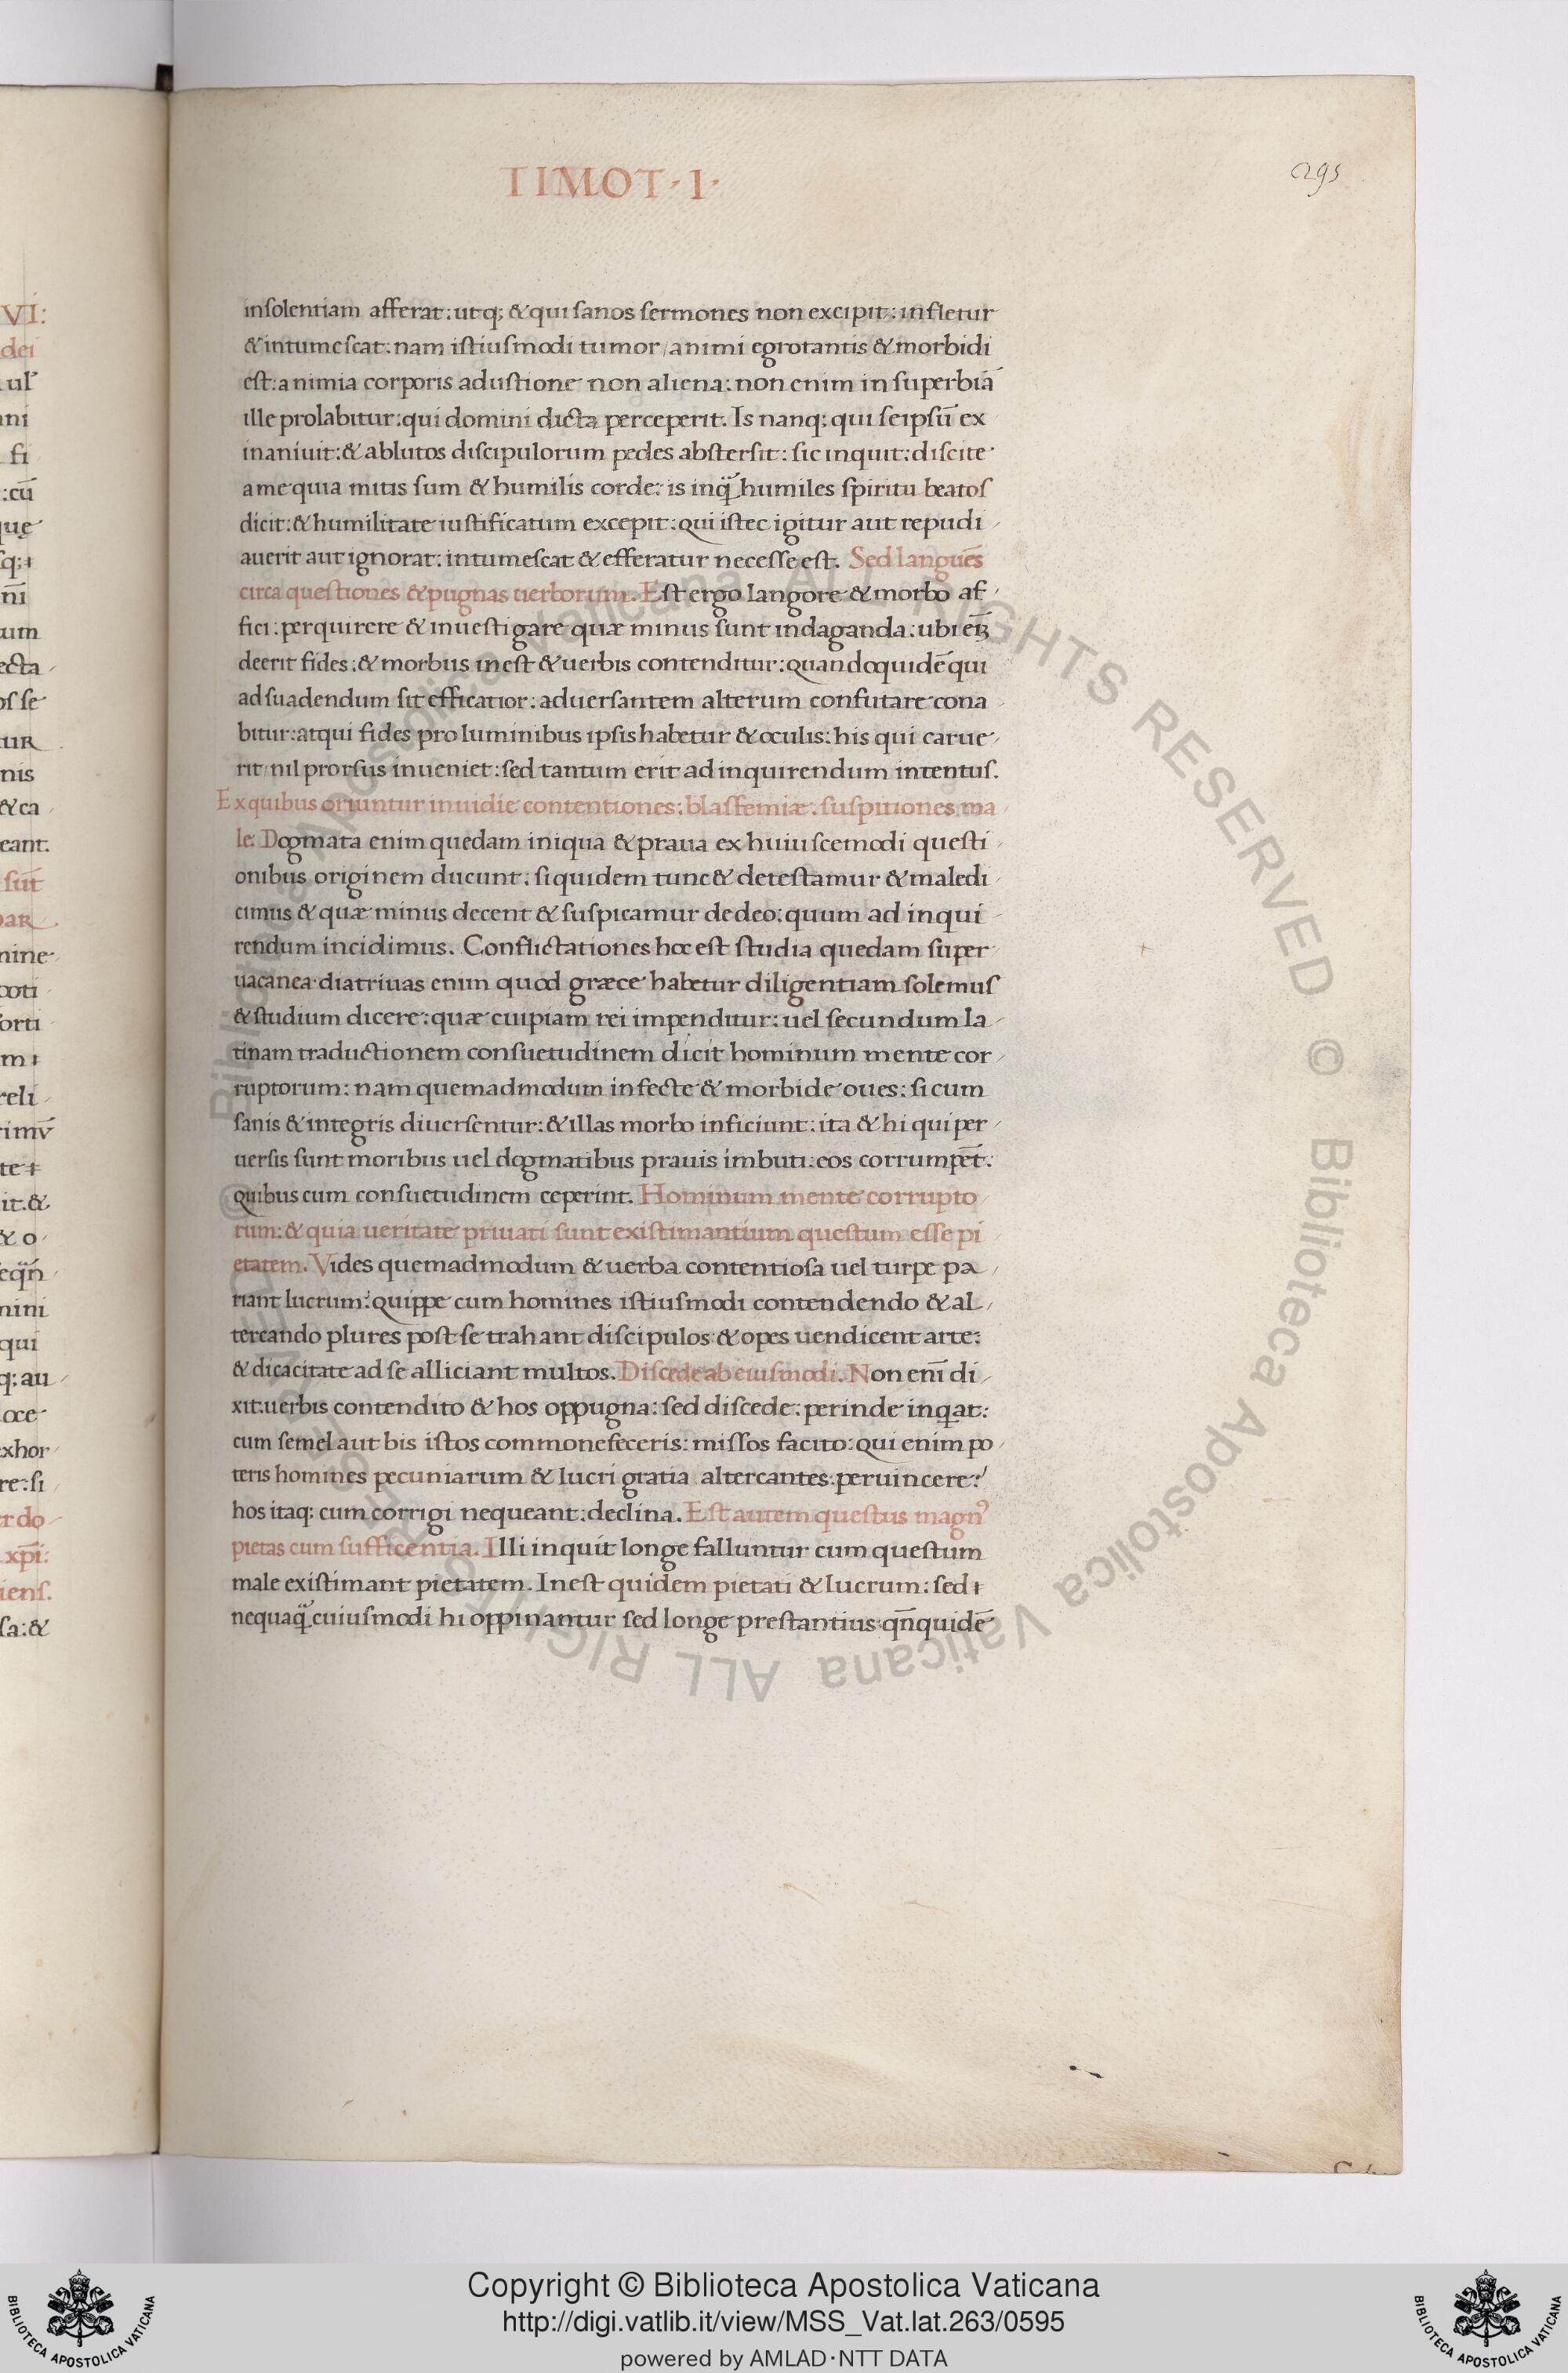 TIMOT·I·
295
insolentiam afferat: utq; & qui sanos sermones non excipit: infletur
& intumescat: nam istiusmodi tumor, animi egrotantis & morbidi
est: a nimia corporis adustione non aliena: non enim in superbiā
ille prolabitur: qui domini dicta perceperit. Is nanq; qui seipsū ex
inaniuit: & ablutos discipulorum pedes abstersit: sic inquit: discite
a me quia mitis sum & humilis corde: is inq̈ humiles spiritu beatos
dicit: & humilitate iustificatum excepit: qui istec igitur aut repudi
auerit aut ignorat: intumescat & efferatur necesse est. Sed languēs
circa questiones & pugnas uerborum. Est ergo langore & morbo af
fici: perquirere & inuestigare quæ minus sunt indaganda: ubi eīȝ
deerit fides: & morbus inest & uerbis contenditur: quandoquidē qui
ad suadendum sit efficatior: aduersantem alterum confutare cona
bitur: atqui fides pro luminibus ipsis habetur & oculis: his qui carue
rit, nil prorsus inueniet: sed tantum erit ad inquirendum intentus.
Ex quibus oriuntur inuidie contentiones: blasfemiæ: suspitiones ma
le. Dogmata enim quedam iniqua & praua ex huiuscemodi questi
onibus originem ducunt: siquidem tunc & detestamur & maledi
cimus & quæ minus decent & suspicamur de deo: quum ad inqui
rendum incidimus. Conflictationes hoc est studia quedam super
uacanea diatriuas enim quod græce habetur diligentiam solemus
& studium dicere: quæ cuipiam rei impenditur: uel secundum la
tinam traductionem consuetudinem dicit hominum mente cor
ruptorum: nam quemadmodum infecte & morbide oues: si cum
sanis & integris diuersentur: & illas morbo inficiunt: ita & hi qui per
uersis sunt moribus uel dogmatibus prauis imbuti: eos corrumpēt:
quibus cum consuetudinem ceperint. Hominum mente corrupto
rum: & quia ueritate priuati sunt existimantium questum esse pi
etatem. Vides quemadmodum & uerba contentiosa uel turpe pa
riant lucrum: quippe cum homines istiusmodi contendendo & al
tercando plures post se trahant discipulos & opes uendicent arte:
& dicacitate ad se alliciant multos. Discede ab eiusmodi. Non enī di
xit: uerbis contendito & hos oppugna: sed discede: perinde inqat:
cum semel aut bis istos commonefeceris: missos facito: qui enim po
teris homines pecuniarum & lucri gratia altercantes: peruincere?
hos itaq; cum corrigi nequeant: declina. Est autem questus magn᾽
pietas cum sufficentia. Illi inquit longe falluntur cum questum
male existimant pietatem. Inest quidem pietati & lucrum: sed
nequaq̈ cuiusmodi hi oppinantur sed longe prestantius: qn̄quidē
VI:
dei
Copyright © Biblioteca Apostolica Vaticana
http://digi.vatlib.it/view/MSS_Vat.lat.263/0595
powered by AMLAD·NTT DATA